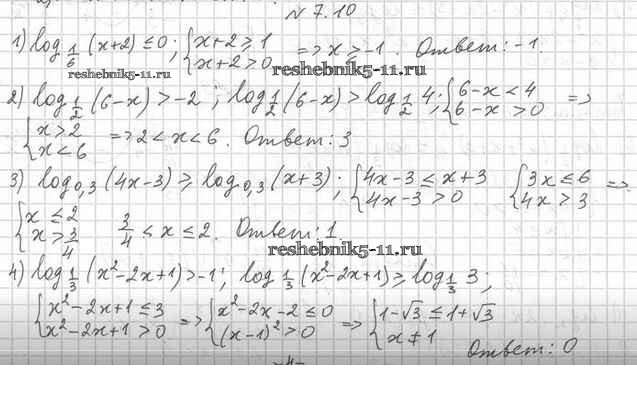 № 7.10
1) log_{1/6} (x+2) ≤ 0; { x+2 ≥ 1 => x ≥ -1. Ответ: -1.
x+2 > 0
reshebnik5-11.ru reshebnik5-11.ru
2) log_{1/2} (6-x) > -2; log_{1/2} (6-x) > log_{1/2} 4; { 6-x < 4 =>
6-x > 0
{ x > 2 => 2 < x < 6. Ответ: 3
x < 6
3) log_{0,3} (4x-3) ≥ log_{0,3} (x+3); { 4x-3 ≤ x+3 { 3x ≤ 6 =>
4x-3 > 0 4x > 3
{ x ≤ 2 3/4 < x ≤ 2. Ответ: 1.
x > 3/4
reshebnik5-11.ru
4) log_{1/3} (x²-2x+1) > -1; log_{1/3} (x²-2x+1) ≥ log_{1/3} 3;
{ x²-2x+1 ≤ 3 => { x²-2x-2 ≤ 0 => { 1-√3 ≤ 1+√3
x²-2x+1 > 0 (x-1)² > 0 x ≠ 1
Ответ: 0